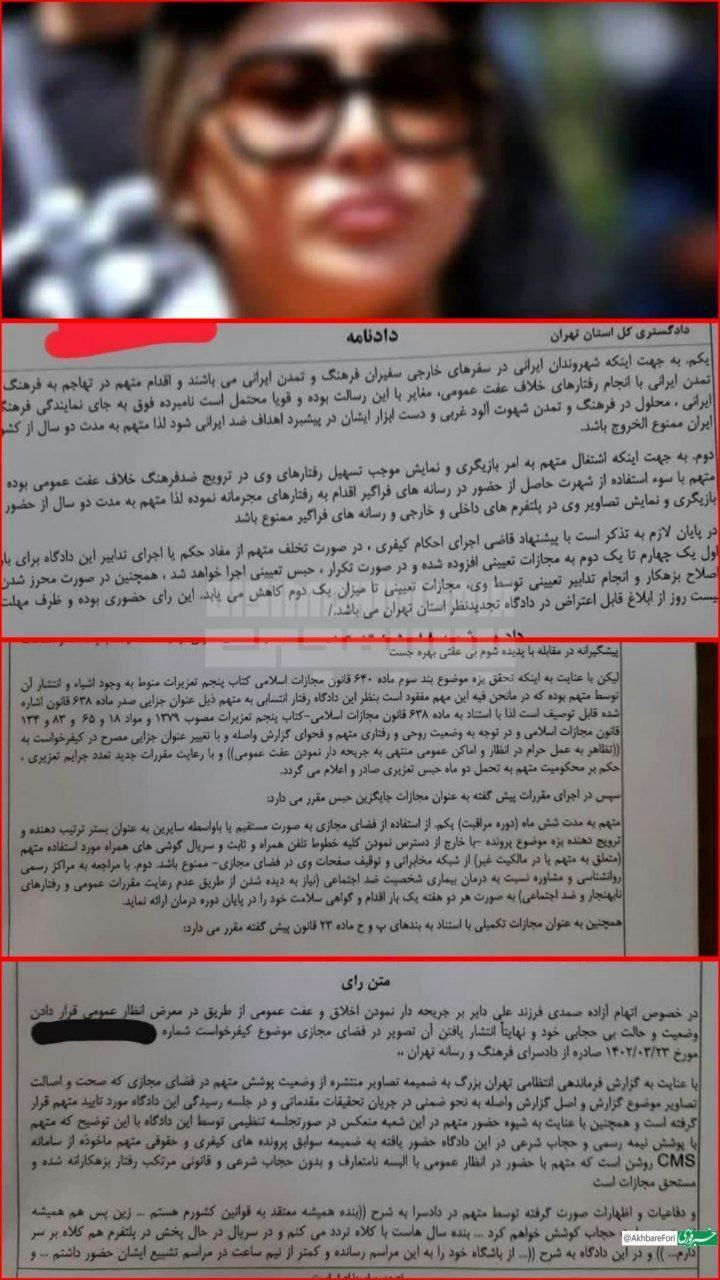 دادگستری کل استان تهران
دادنامه
یکم. به جهت اینکه شهروندان ایرانی در سفرهای خارجی سفیران فرهنگ و تمدن ایرانی می باشند و اقدام متهم در تهاجم به فرهنگ
تمدن ایرانی با انجام رفتارهای خلاف عفت عمومی، مغایر با این رسالت بوده و قویا محتمل است نامبرده فوق به جای نمایندگی فرهنگ
ایرانی ، محلول در فرهنگ و تمدن شهوت آلود غربی و دست ابزار ایشان در پیشبرد اهداف ضد ایرانی شود لذا متهم به مدت دو سال از کشور
ایران ممنوع الخروج باشد.
دوم. به جهت اینکه اشتغال متهم به امر بازیگری و نمایش موجب تسهیل رفتارهای وی در ترویج ضدفرهنگ خلاف عفت عمومی بوده
متهم با سوء استفاده از شهرت حاصل از حضور در رسانه های فراگیر اقدام به رفتارهای مجرمانه نموده لذا متهم به مدت دو سال از حضور
بازیگری و نمایش تصاویر وی در پلتفرم های داخلی و خارجی و رسانه های فراگیر ممنوع باشد
در پایان لازم به تذکر است با پیشنهاد قاضی اجرای احکام کیفری ، در صورت تخلف متهم از مفاد حکم یا اجرای تدابیر این دادگاه برای بار
اول یک چهارم تا یک دوم به مجازات تعیینی افزوده شده و در صورت تکرار ، حبس تعیینی اجرا خواهد شد ، همچنین در صورت محرز شدن
اصلاح بزهکار و انجام تدابیر تعیینی توسط وی، مجازات تعیینی تا میزان یک دوم کاهش می یابد. این رای حضوری بوده و ظرف مهلت
بیست روز از ابلاغ قابل اعتراض در دادگاه تجدیدنظر استان تهران می باشد./
پیشگیرانه در مقابله با پدیده شوم بی عفتی بهره جست
لیکن با عنایت به اینکه تحقق بزه موضوع بند سوم ماده ۶۴۰ قانون مجازات اسلامی کتاب پنجم تعزیرات منوط به وجود اشیاء و انتشار آن
توسط متهم بوده که در مانحن فیه این مهم مفقود است بنظر این دادگاه رفتار انتسابی به متهم ذیل عنوان جزایی صدر ماده ۶۳۸ قانون اشاره
شده قابل توصیف است لذا با استناد به ماده ۶۳۸ قانون مجازات اسلامی-کتاب پنجم تعزیرات مصوب ۱۳۷۹ و مواد ۱۸ و ۶۵ و ۸۳ و ۱۳۴
قانون مجازات اسلامی و در توجه به وضعیت روحی و رفتاری متهم و فحوای گزارش واصله و با تغییر عنوان جزایی مصرح در کیفرخواست به
((تظاهر به عمل حرام در انظار و اماکن عمومی منتهی به جریحه دار نمودن عفت عمومی)) و با رعایت مقررات جدید تعدد جرایم تعزیری ،
حکم بر محکومیت متهم به تحمل دو ماه حبس تعزیری صادر و اعلام می گردد.
سپس در اجرای مقررات پیش گفته به عنوان مجازات جایگزین حبس مقرر می دارد:
متهم به مدت شش ماه (دوره مراقبت) یکم. از استفاده از فضای مجازی به صورت مستقیم یا باواسطه سایرین به عنوان بستر ترتیب دهنده و
ترویج دهنده بزه موضوع پرونده -با خارج از دسترس نمودن کلیه خطوط تلفن همراه و ثابت و سریال گوشی های همراه مورد استفاده متهم
(متعلق به متهم یا در مالکیت غیر) از شبکه مخابراتی و توقیف صفحات وی در فضای مجازی- ممنوع باشد. دوم. با مراجعه به مراکز رسمی
روانشناسی و مشاوره نسبت به درمان بیماری شخصیت ضد اجتماعی (نیاز به دیده شدن از طریق عدم رعایت مقررات عمومی و رفتارهای
نابهنجار و ضد اجتماعی) به صورت هر دو هفته یک بار اقدام و گواهی سلامت خود را در پایان دوره درمان ارائه نماید.
همچنین به عنوان مجازات تکمیلی با استناد به بندهای پ و ح ماده ۲۳ قانون پیش گفته مقرر می دارد:
متن رای
در خصوص اتهام آزاده صمدی فرزند علی دایر بر جریحه دار نمودن اخلاق و عفت عمومی از طریق در معرض انظار عمومی قرار دادن
وضعیت و حالت بی حجابی خود و نهایتاً انتشار یافتن آن تصویر در فضای مجازی موضوع کیفرخواست شماره
مورخ ۱۴۰۲/۰۳/۲۳ صادره از دادسرای فرهنگ و رسانه تهران ،،
با عنایت به گزارش فرماندهی انتظامی تهران بزرگ به ضمیمه تصاویر منتشره از وضعیت پوشش متهم در فضای مجازی که صحت و اصالت
تصاویر موضوع گزارش و اصل گزارش واصله به نحو ضمنی در جریان تحقیقات مقدماتی و در جلسه رسیدگی این دادگاه مورد تایید متهم قرار
گرفته است و همچنین با عنایت به شیوه حضور متهم در این شعبه منعکس در صورتجلسه تنظیمی توسط این دادگاه با این توضیح که متهم
با پوشش نیمه رسمی و حجاب شرعی در این دادگاه حضور یافته به ضمیمه سوابق پرونده های کیفری و حقوقی متهم ماخوذه از سامانه
CMS روشن است که متهم با حضور در انظار عمومی با البسه نامتعارف و بدون حجاب شرعی و قانونی مرتکب رفتار بزهکارانه شده و
مستحق مجازات است
و دفاعیات و اظهارات صورت گرفته توسط متهم در دادسرا به شرح ((بنده همیشه معتقد به قوانین کشورم هستم ... زین پس هم همیشه
حجاب کوشش خواهم کرد ... بنده سال هاست با کلاه تردد می کنم و در سریال در حال پخش در پلتفرم هم کلاه بر سر
دارم... )) و در این دادگاه به شرح ((... از باشگاه خود را به این مراسم رسانده و کمتر از نیم ساعت در مراسم تشییع ایشان حضور داشتم ... و
خبرفوری
@AkhbareFori